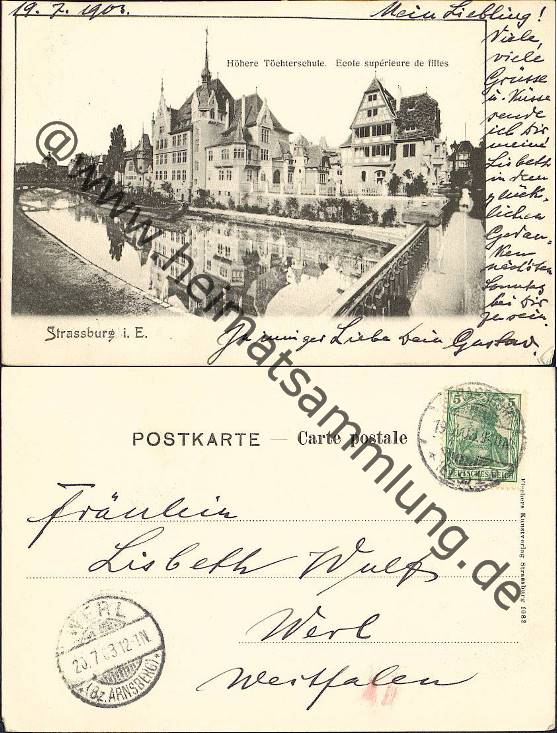 19. 7. 1903.
Mein Liebling!
Viele,
viele
Grüsse
u. Küsse
sende
ich Dir
meine
Lisbeth
in dem
glück-
lichen
Gedan-
ken
nächsten
Sonntag
bei Dir
zu sein.
Höhere Töchterschule. Ecole supérieure de filles
Strassburg i. E.
In inniger Liebe Dein Gustav.
@www.heimatsammlung.de
POSTKARTE — Carte postale
5 5
DEUTSCHES REICH
Fräulein
Lisbeth Wulf
Werl
Westfalen
WERL
20.7.03.12-1N.
*(Bz. ARNSBERG)*
Fischers Kunstverlag Strassburg 1082